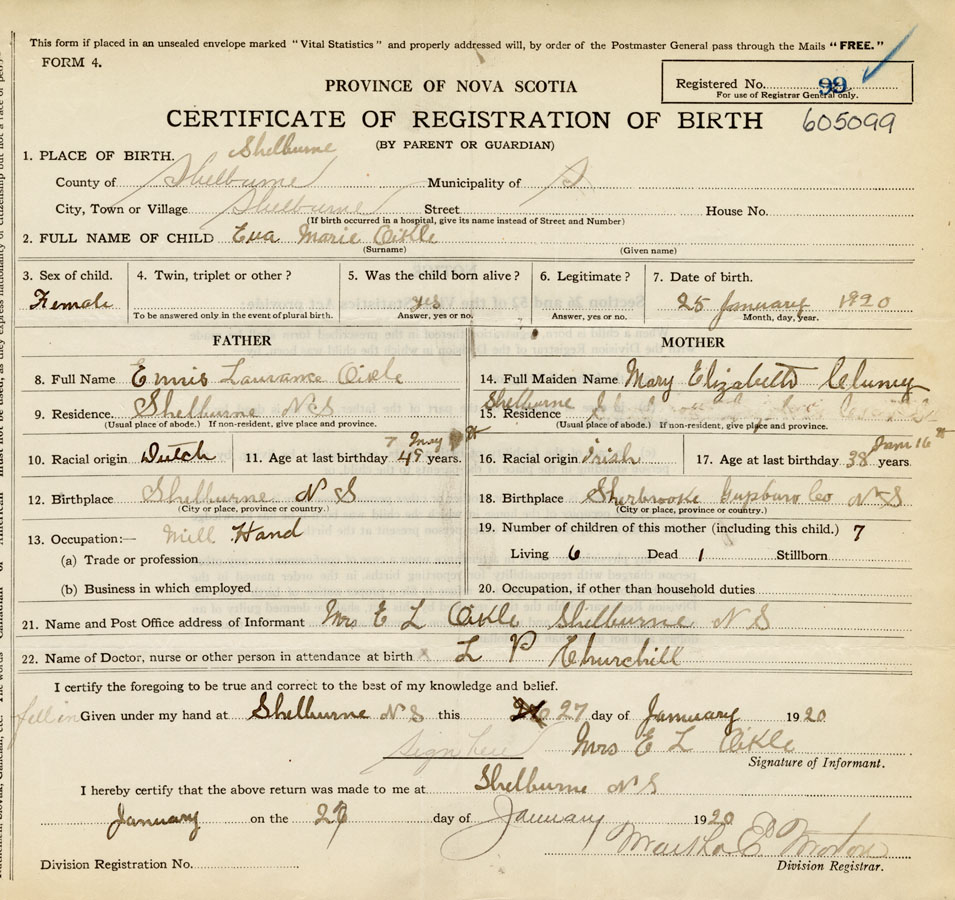 This form if placed in an unsealed envelope marked "Vital Statistics" and properly addressed will, by order of the Postmaster General pass through the Mails "FREE."
FORM 4.
PROVINCE OF NOVA SCOTIA
Registered No. 99
For use of Registrar General only.
CERTIFICATE OF REGISTRATION OF BIRTH 605099
(BY PARENT OR GUARDIAN)
1. PLACE OF BIRTH. Shelburne
County of Shelburne Municipality of S
City, Town or Village Shelburne Street House No.
(If birth occurred in a hospital, give its name instead of Street and Number)
2. FULL NAME OF CHILD Eva Marie Oikle
(Surname) (Given name)
3. Sex of child. 4. Twin, triplet or other? 5. Was the child born alive? 6. Legitimate? 7. Date of birth.
Female yes 25 January 1920
To be answered only in the event of plural birth. Answer, yes or no. Answer, yes or no. Month, day, year.
FATHER MOTHER
8. Full Name Ennis Lauranke Oikle 14. Full Maiden Name Mary Elizabeth
9. Residence. Shelburne N S 15. Residence Shelburne
(Usual place of abode.) If non-resident, give place and province. (Usual place of abode.) If non-resident, give place and province.
7 May Jani 16th
10. Racial origin Dutch 11. Age at last birthday years. 16. Racial origin Irish 17. Age at last birthday 38 years.
12. Birthplace Shelburne N S 18. Birthplace Sherbrooke Co N S
(City or place, province or country.) (City or place, province or country.)
13. Occupation:— Mill Hand 19. Number of children of this mother (including this child.) 7
(a) Trade or profession Living 6 Dead 1 Stillborn
(b) Business in which employed 20. Occupation, if other than household duties
21. Name and Post Office address of Informant Mrs E L Oikle Shelburne N S
22. Name of Doctor, nurse or other person in attendance at birth x L P Churchill
I certify the foregoing to be true and correct to the best of my knowledge and belief.
fill in Given under my hand at Shelburne N S this 27 day of January 1920
sign here Mrs E L Oikle
Signature of Informant.
I hereby certify that the above return was made to me at Shelburne N S
January on the day of January 1920
Martha E
Division Registration No. Division Registrar.